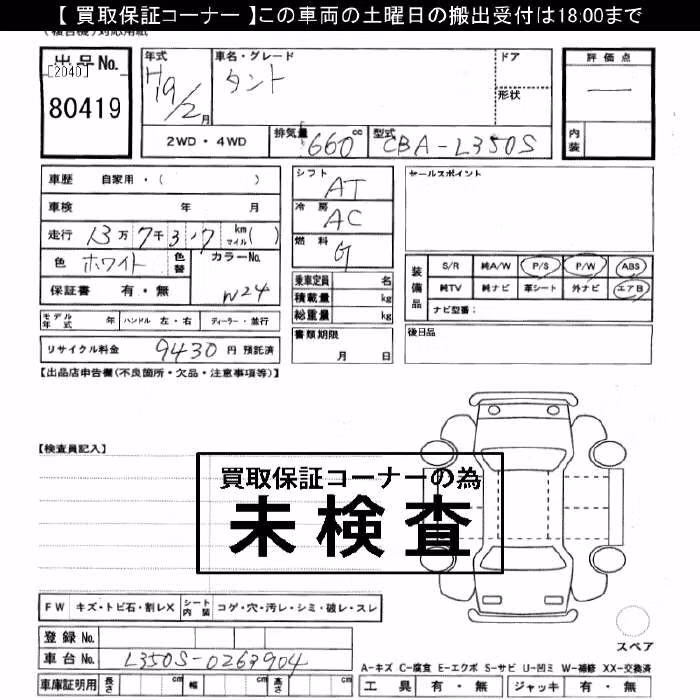 【 買取保証コーナー 】この車両の土曜日の搬出受付は18:00まで
出品No.
[2040]
80419
年式
H19/2月
車名・グレード
タント
ドア
形状
2WD・4WD
排気量 660 cc
型式 CBA-L350S
評価点
一
内装
車歴 自家用・( )
車検 年 月
走行 13万7千317 km マイル( )
色 ホワイト
色替
カラーNo.
W24
保証書 有・無
モデル年式 年 ハンドル 左・右 ディーラー・並行
リサイクル料金 9430 円 預託済
シフト AT
冷房 AC
燃料 G
乗車定員 名
積載量 kg
総重量 kg
書類期限
月 日
セールスポイント
装備品
S/R 純A/W P/S P/W ABS
純TV 純ナビ 革シート 外ナビ エアB
ナビ型番:
後日品
【出品店申告欄(不良箇所・欠品・注意事項等)】
【検査員記入】
買取保証コーナーの為
未検査
FW キズ・トビ石・割レX シート内装 コゲ・穴・汚レ・シミ・破レ・スレ
登録No.
車台No. L350S-0263904
車庫証明用 長さ cm 幅 cm 高さ cm
スペア
A-キズ C-腐食 E-エクボ S-サビ U-凹ミ W-補修 XX-交換済
工具 有・無 ジャッキ 有・無